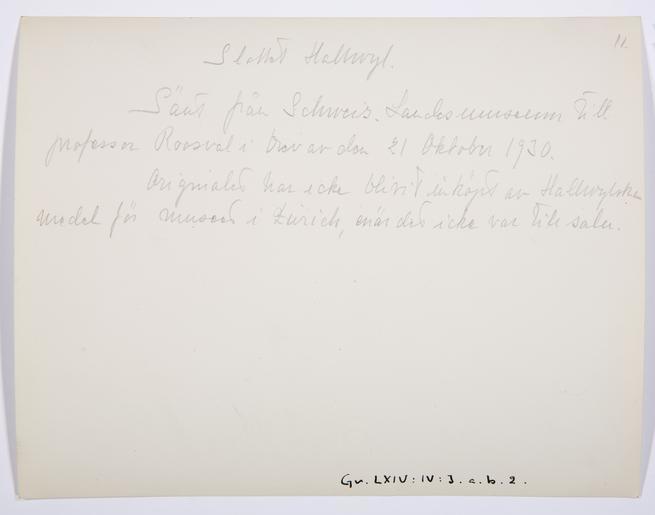 11.
Slottet Hallwyl.
Sänt från Schweiz. Landesmuseum till
professor Roosval i brev av den 21 Oktober 1930.
Originalet har icke blivit inköpt av Hallwylska
medel för museet i Zürich, enär det icke var till salu.
Gr. LXIV : IV : J. a. b. 2.